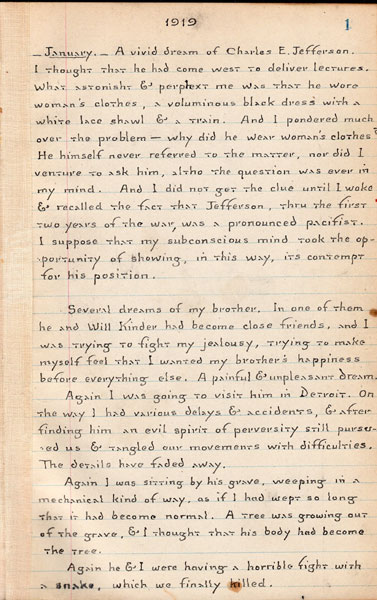 1919
1
— January. — A vivid dream of Charles E. Jefferson.
I thought that he had come west to deliver lectures.
What astonisht & perplext me was that he wore
woman's clothes, a voluminous black dress with a
white lace shawl & a train. And I pondered much
over the problem — why did he wear woman's clothes?
He himself never referred to the matter, nor did I
venture to ask him, altho the question was ever in
my mind. And I did not get the clue until I woke
& recalled the fact that Jefferson, thru the first
two years of the war, was a pronounced pacifist.
I suppose that my subconscious mind took the op-
portunity of showing, in this way, its contempt
for his position.
Several dreams of my brother. In one of them
he and Will Kinder had become close friends, and I
was trying to fight my jealousy, trying to make
myself feel that I wanted my brother's happiness
before everything else. A painful & unpleasant dream.
Again I was going to visit him in Detroit. On
the way I had various delays & accidents, & after
finding him an evil spirit of perversity still pursu-
ed us & tangled our movements with difficulties.
The details have faded away.
Again I was sitting by his grave, weeping in a
mechanical kind of way, as if I had wept so long
that it had become normal. A tree was growing out
of the grave, & I thought that his body had become
the tree.
Again he & I were having a horrible fight with
a snake, which we finally killed.